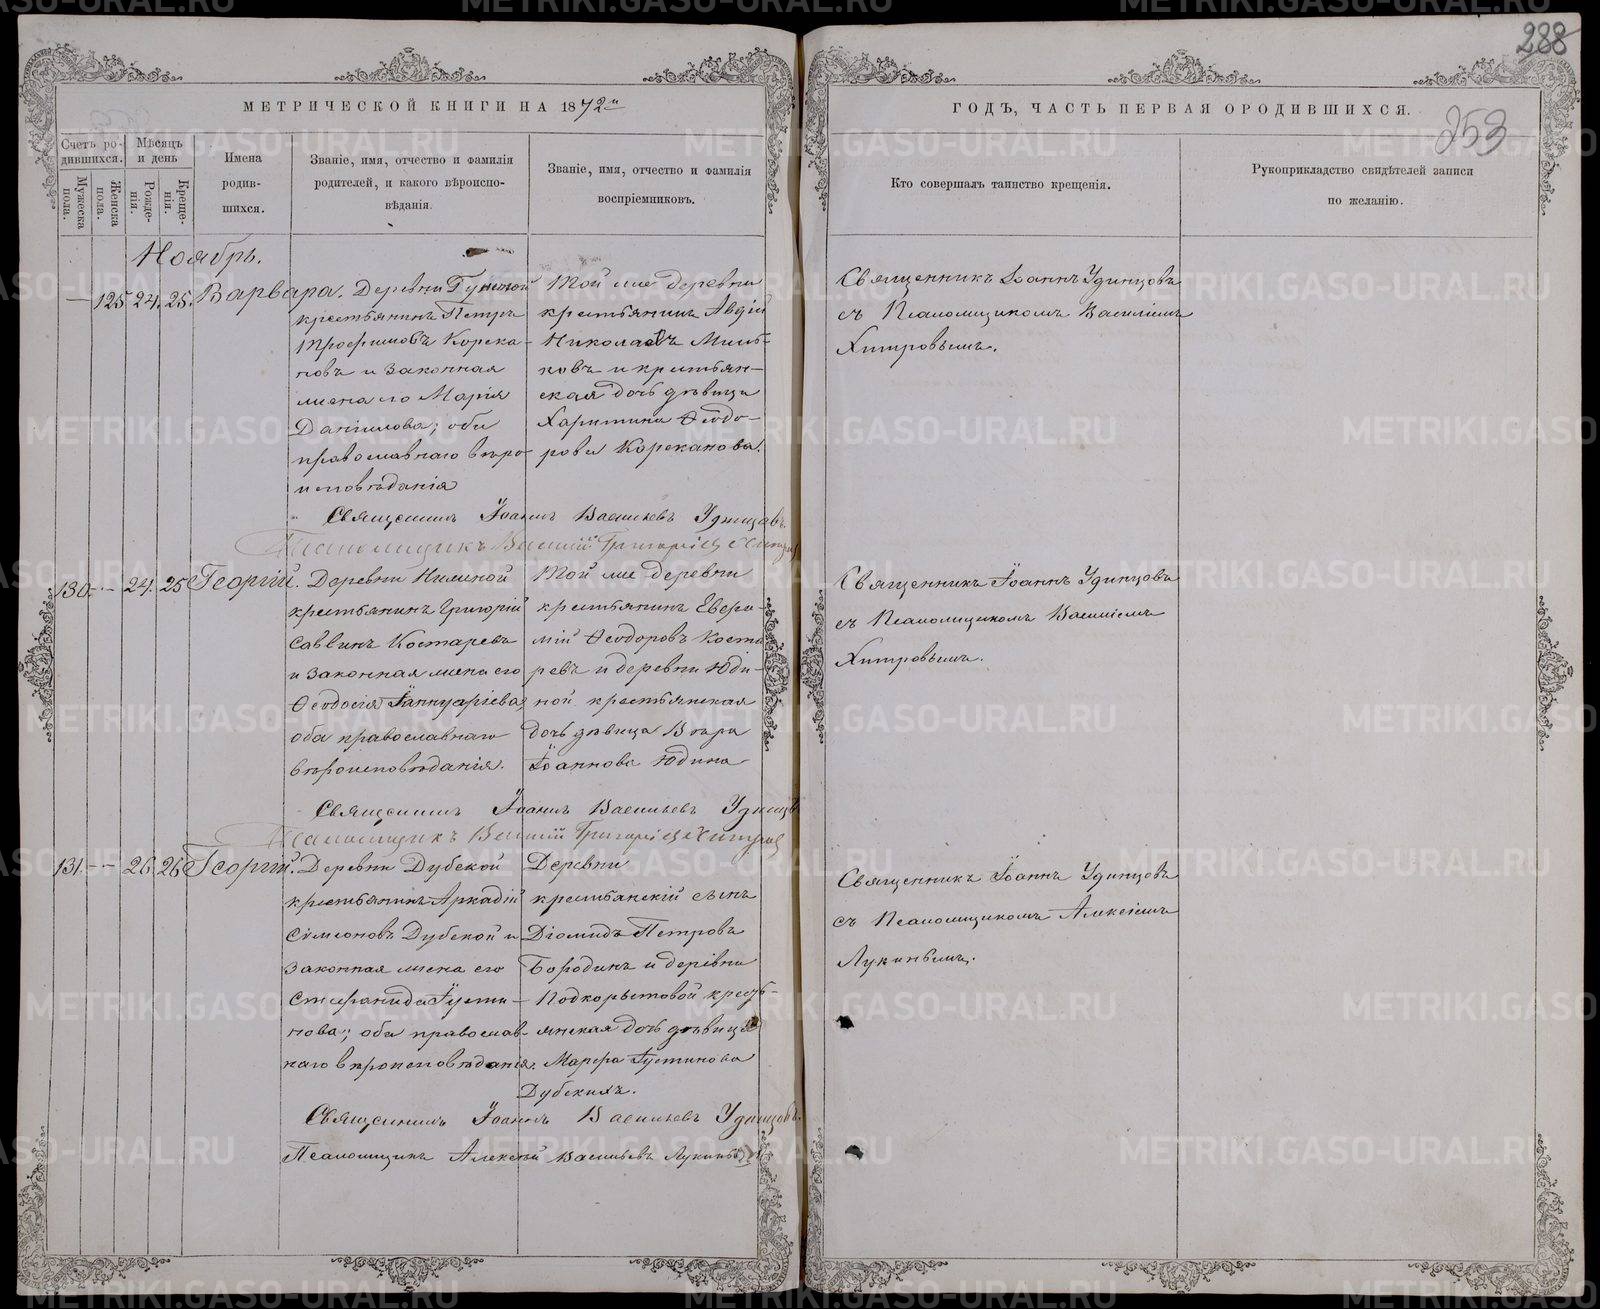 288
МЕТРИЧЕСКОЙ КНИГИ НА 1872й
ГОДЪ, ЧАСТЬ ПЕРВАЯ ОРОДИВШИХСЯ.
253
Счетъ ро-
дившихся.
Мужеска
пола.
Женска
пола.
Мѣсяцъ
и день
Рожде-
нія.
Креще-
нія.
Имена
родив-
шихся.
Званіе, имя, отчество и фамилія
родителей, и какого вѣроиспо-
вѣданія.
Званіе, имя, отчество и фамилія
воспріемниковъ.
Кто совершалъ таинство крещенія.
Рукоприкладство свидѣтелей записи
по желанію.
Ноябрь.
— 125 24. 25. Варвара.
Деревни
крестьянинъ Петръ
Трофимовъ Корека-
новъ и законная
жена его Марія
Даніилова; оба
православнаго вѣро-
исповѣданія
Той же деревни
крестьянинъ Авдій
Николаевъ
ковъ и крестьян-
ская дочь дѣвица
Харитина Ѳеодо-
рова Кореканова.
Священникъ Іоаннъ Удинцовъ
съ Псаломщикомъ Василіемъ
Хитровымъ.
Священникъ Іоаннъ Васильевъ Удинцовъ.
Псаломщикъ Василій Григорьевъ Хитровъ
130 - - 24. 25 Георгій.
Деревни
крестьянинъ Григорій
Саввинъ Костаревъ
и законная жена его
Ѳеодосія Іаннуаріева;
оба православнаго
вѣроисповѣданія.
Той же деревни
крестьянинъ Евѳи-
мій Ѳеодоровъ Коста
ревъ и деревни Юди-
ной крестьянская
дочь дѣвица Вѣра
Іоаннова Юдина
Священникъ Іоаннъ Удинцовъ
съ Псаломщикомъ Василіемъ
Хитровымъ.
Священникъ Іоаннъ Васильевъ Удинцовъ
Псаломщикъ Василій Григорьевъ Хитровъ
131 - - 26. 26 Георгій.
Деревни Дубской
крестьянинъ Аркадій
Сѵмеоновъ Дубской и
законная жена его
Стефанида Іусти-
нова; оба православ-
наго вѣроисповѣданія.
Деревни
крестьянскій сынъ
Діомидъ Петровъ
Бородинъ и деревни
Подкорытовой кресть-
янская дочь дѣвица
Марѳа Іустинова
Дубскихъ.
Священникъ Іоаннъ Удинцовъ
съ Псаломщикомъ Алексіемъ
Лукинымъ.
Священникъ Іоаннъ Васильевъ Удинцовъ.
Псаломщикъ Алексѣй Васильевъ Лукинъ
METRIKI.GASO-URAL.RU